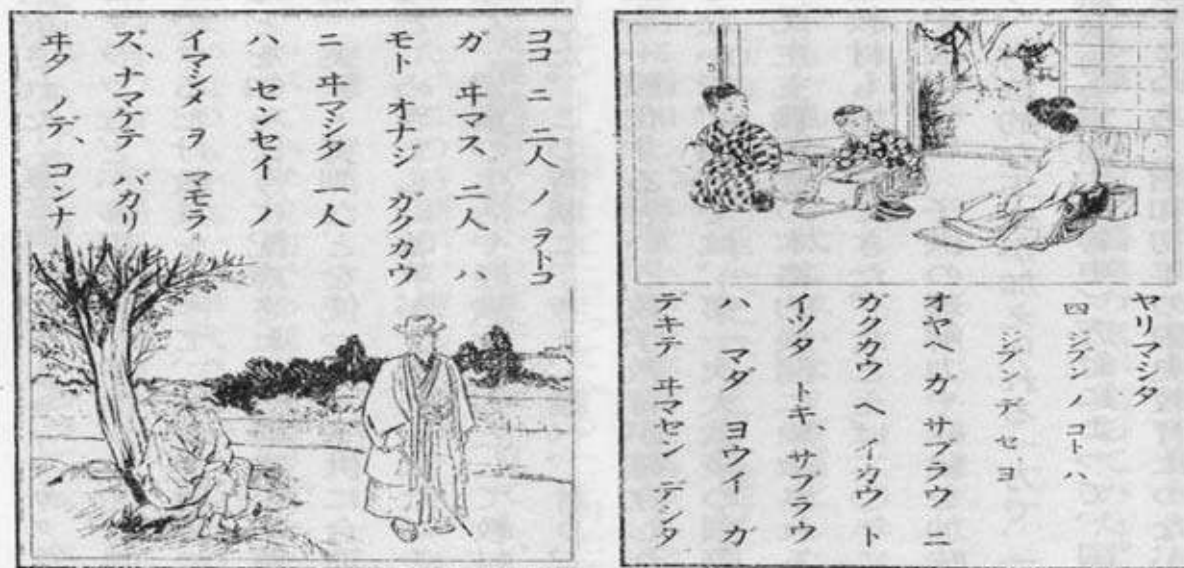 ヤリマシタ
四 ジブン ノ コト ハ
ジブン デ セ ヨ
オヤヘ ガ サブラウ ニ
ガクカウ ヘ イカウ ト
イツタ トキ、サブラウ
ハ マダ ヨウイ ガ
デキテ ヰマセン デシタ
ココ ニ 二人 ノ ヲトコ
ガ ヰマス 二人 ハ
モト オナジ ガクカウ
ニ ヰマシタ 一人
ハ センセイ ノ
イマシメ ヲ マモラ
ズ、ナマケテ バカリ
ヰタ ノデ、コンナ